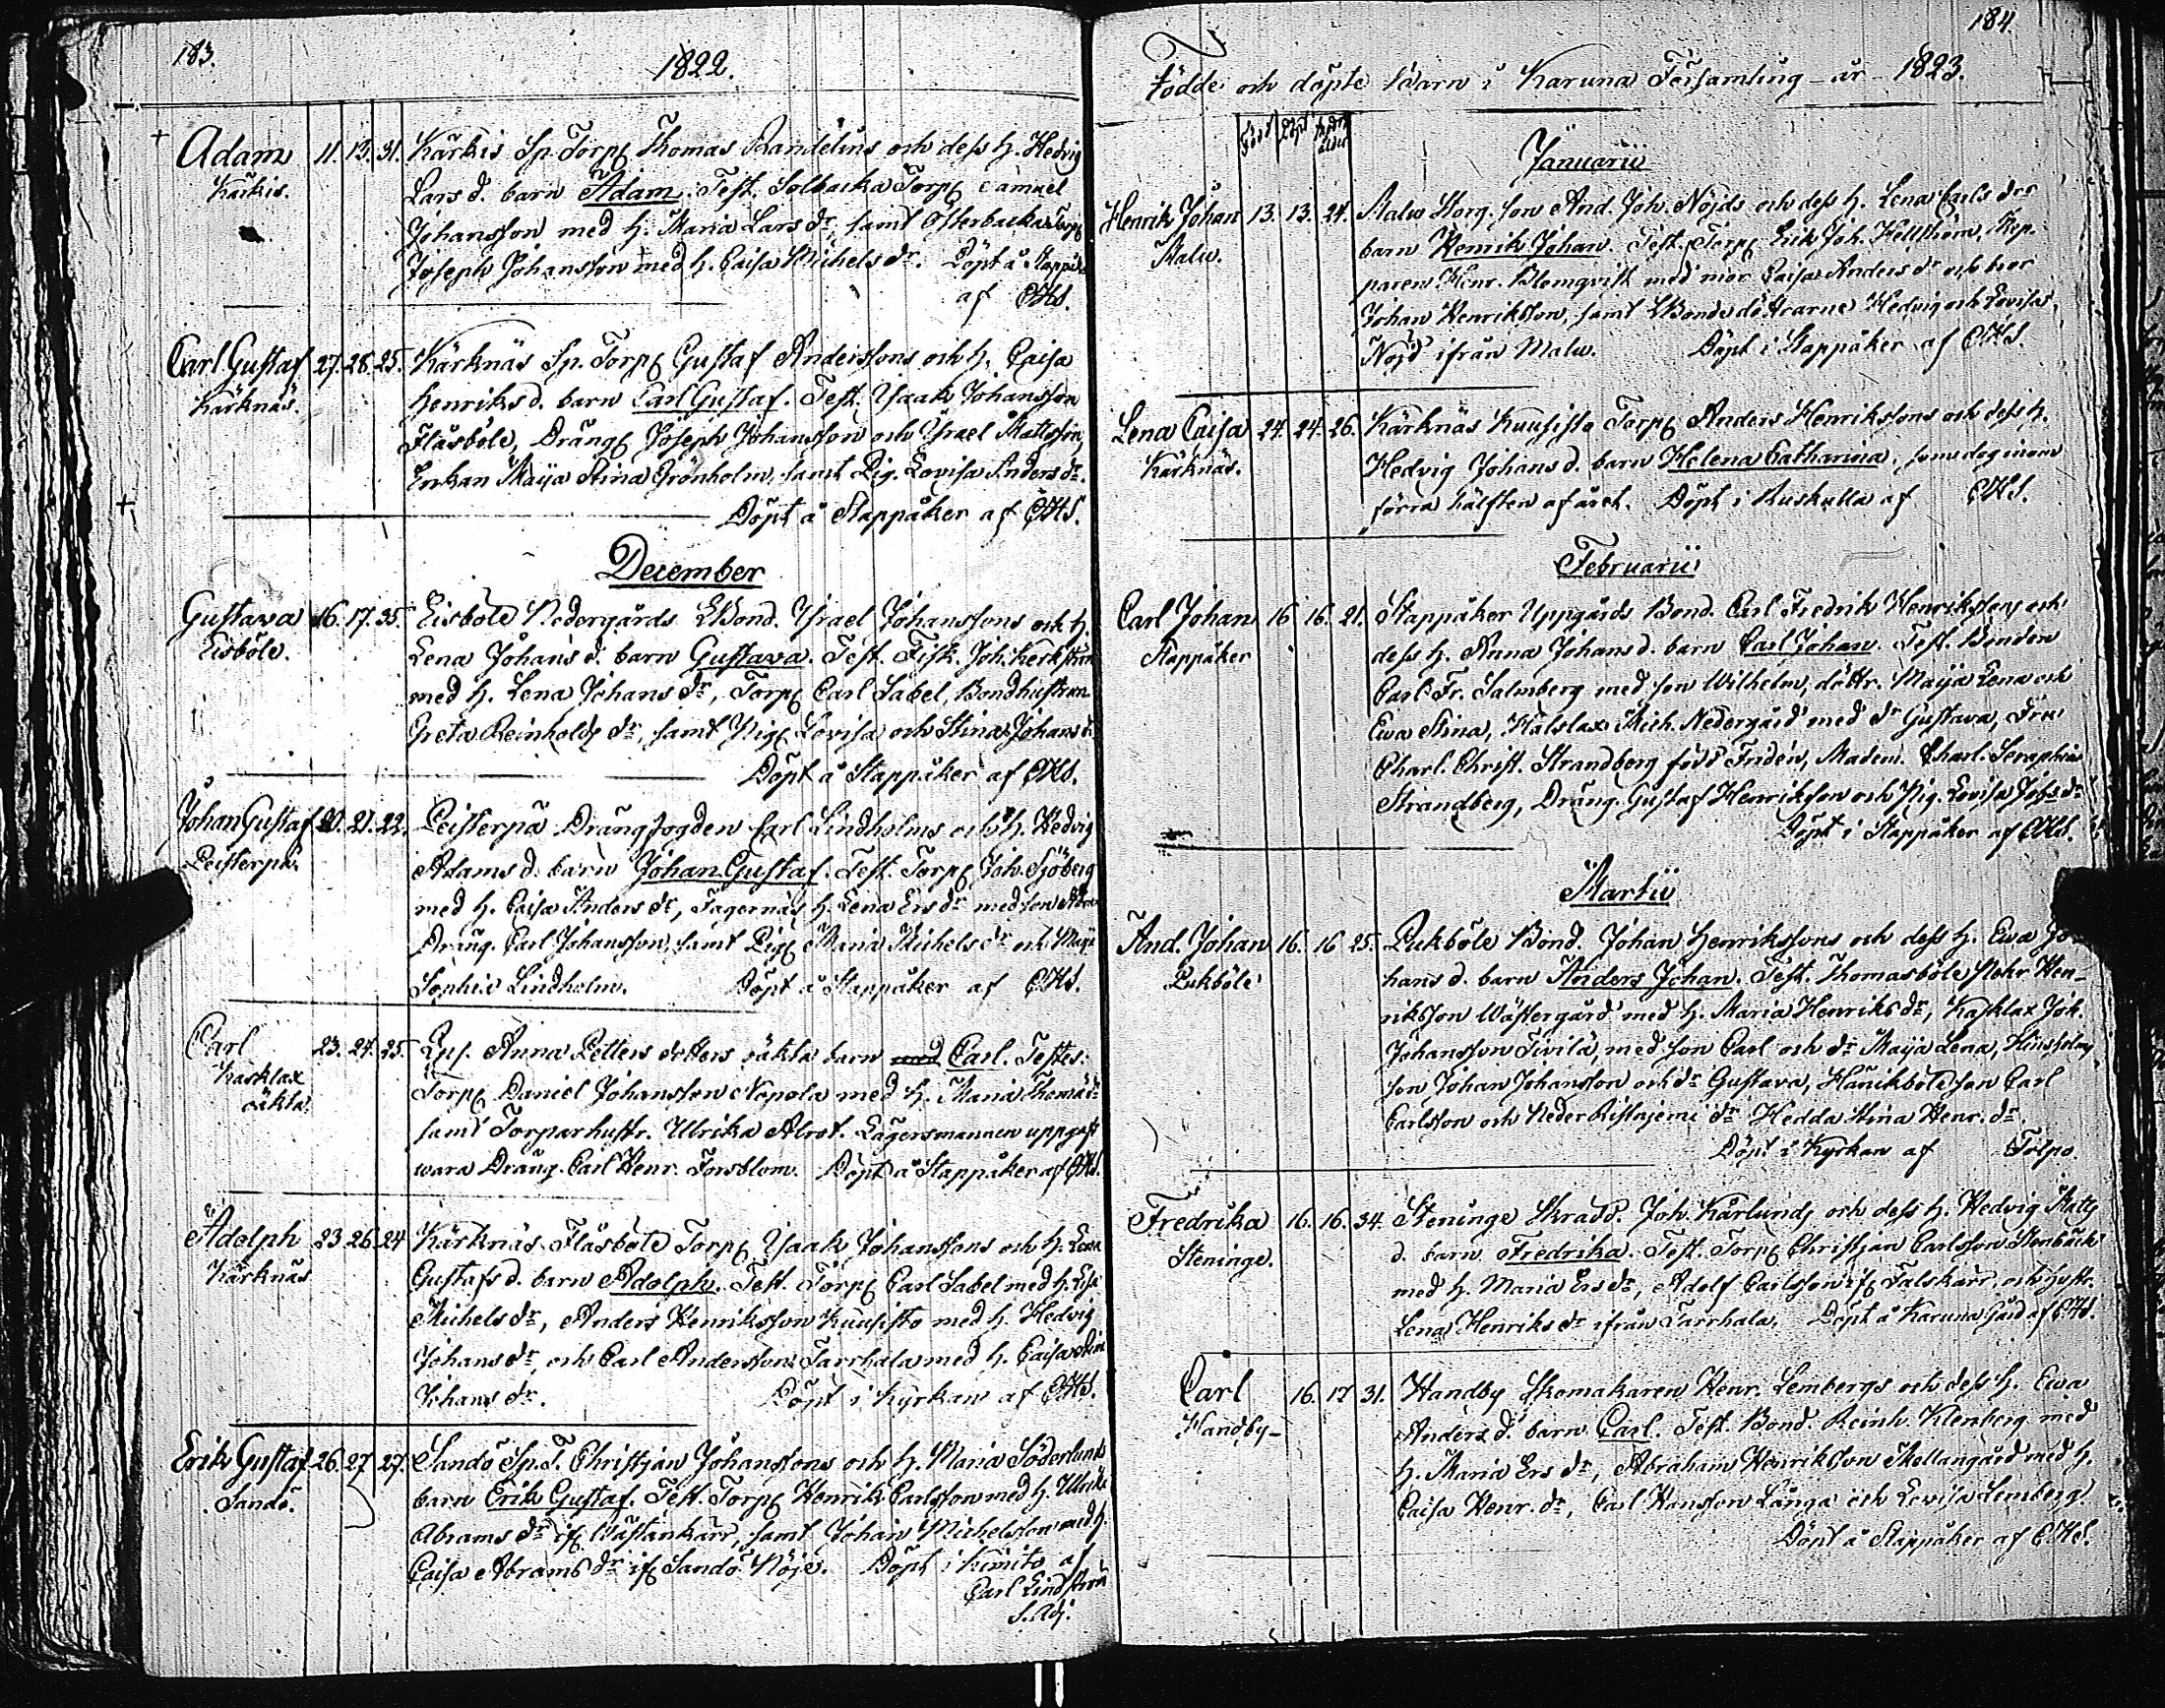 183.
1822.
Adam 11. 13. 31. Kärkis Sp. Torp. Thomas Randelins och dess h. Hedvig
Kärkis. Lars d. barn Adam. Test. Solbacka Torp. Samuel
Johansson med h. Maria Lars dr, samt Österbacka Torp.
Joseph Johansson med h. Caisa Michels dr. Döpt å Stappåker
af CHS.
Carl Gustaf 27. 28. 25. Kärknäs Sp. Torp. Gustaf Anderssons och h. Caisa
Kärknäs. Henriks d. barn Carl Gustaf. Test. Isaak Johansson
Fläsböle, Dräng. Joseph Johansson och Israel Mattsson,
Enkan Maija Stina Grönholm, samt Pig. Lovisa Anders dr.
Döpt å Stappåker af CHS.
December
Gustava 16. 17. 35. Eisböle Nedergårds Bond. Israel Johanssons och h.
Eisböle. Lena Johans d. barn Gustava. Test. Fisk. Joh.
med h. Lena Johans dr, Torp. Carl Sabel, Bondhustrun
Greta Reinholds dr, samt Pig. Lovisa och Stina Johans d.
Döpt å Stappåker af CHS.
Johan Gustaf 20. 21. 22. Peisterpä Drängfogden Carl Lindholms och h. Hedvig
Peisterpä. Adams d. barn Johan Gustaf. Test. Torp. Joh. Sjöberg
med h. Caisa Anders dr, Fagernäs h. Lena Ers dr med son
Dräng. Carl Johansson, samt Pig. Maria Michels dr och Maja
Sophia Lindholm. Döpt å Stappåker af CHS.
Carl 23. 24. 25. Anna Petters dotters oäkta barn Carl. Testes:
Kasklax Torp. Daniel Johansson Nopola med h. Maria Thomæ dr
oäkta. samt Torparhustr. Ulrika Alrot. Lägersmannen uppgafs
wara Dräng. Carl Henr. Forsblom. Döpt å Stappåker af CHS.
Adolph 23. 26. 24 Kärknäs Fläsböle Torp. Isaak Johanssons och h. Lena
Kärknäs Gustafs d. barn Adolph. Test. Torp. Carl Sabel med h. Lisa
Michels dr, Anders Henriksson Kuusisto med h. Hedvig
Johans dr, och Carl Andersson Tarrhala med h. Caisa Stina
Johans dr. Döpt i Kyrkan af CHS.
Erik Gustaf 26. 27 27. Sandö Sp. T. Christian Johanssons och h. Maria Söderlunds
Sandö. barn Erik Gustaf. Test. Torp. Henrik Carlsson med h. Ulrika
Abrams dr if. Västankärr, samt Johan Michelsson med h.
Caisa Abrams dr if. Sandö Nöje. Döpt i Kimito af
Carl Lindström
S. Adj.
184.
Födde och döpte Barn i Karuna Församling år 1823.
Född Döpt
Januarii
Henrik Johan 13. 13. 24. Malu Storg. son And. Joh. Nöjds och dess h. Lena Carls drs
Malu. barn Henrik Johan. Test. Torp. Erik Joh. Hellström, Kop-
paren Henr. Blomqvist med mor Caisa Anders dr och bror
Johan Henriksson, samt Bondedöttrarne Hedvig och Lovisa
Nöjd ifrån Malu. Döpt i Stappåker af CHS.
Lena Caisa 24. 24. 26. Kärknäs Kuusisto Torp. Anders Henrikssons och dess h.
Kärknäs. Hedvig Johans d. barn Helena Catharina, som dog inom
förra hälften af året. Döpt i Ruskulla af CHS.
Februarii
Carl Johan 16 16. 21. Stappåker Uppgårds Bond. Carl Fredrik Henrikssons och
Stappåker dess h. Anna Johans d. barn Carl Johan. Test. Bonden
Carl Fr. Salmberg med son Wilhelm, döttr. Maija Lena och
Ewa Stina, Hålslax Mich. Nedergård med dr Gustava, Fru
Charl. Christ. Strandberg född Fridén, Madem. Charl. Seraphia
Strandberg, Dräng. Gustaf Henriksson och Pig. Lovisa Johs dr
Döpt i Stappåker af CHS.
Martii
And. Johan 16. 16 25. Pukböle Bond. Johan Henrikssons och dess h. Ewa Jo-
Pukböle hans d. barn Anders Johan. Test. Thomasböle Hen-
riksson Wästergård med h. Maria Henriks dr, Kasklax Joh.
Johansson Tivilä, med son Carl och dr Maija Lena,
son Johan Johansson och dr Gustava, Hanikböle son Carl
Carlsson och Neder Ristniemi dr Hedda Stina Henr. dr.
Döpt i Kyrkan af Tolpo
Fredrika 16. 16. 34. Steninge Skradd. Joh. Kårlunds och dess h. Hedvig Matts
Steninge. d. barn Fredrika. Test. Torp. Christian Carlsson Stenbäck
med h. Maria Ers dr, Adolf Carlsson if. Falskärr, och hustr.
Lena Henriks dr ifrån Tarrhala. Döpt å Karuna Gård af CHS.
Carl 16. 17 31. Handby Skomakaren Henr. Lembergs och dess h. Ewa
Handby- Anders d. barn Carl. Test. Bond. Reinh. Klenberg med
h. Maria Ers dr, Abraham Henriksson Mellangård med h.
Caisa Henr. dr, Carl Hansson Långa och Lovisa Lemberg.
Döpt å Stappåker af CHS.